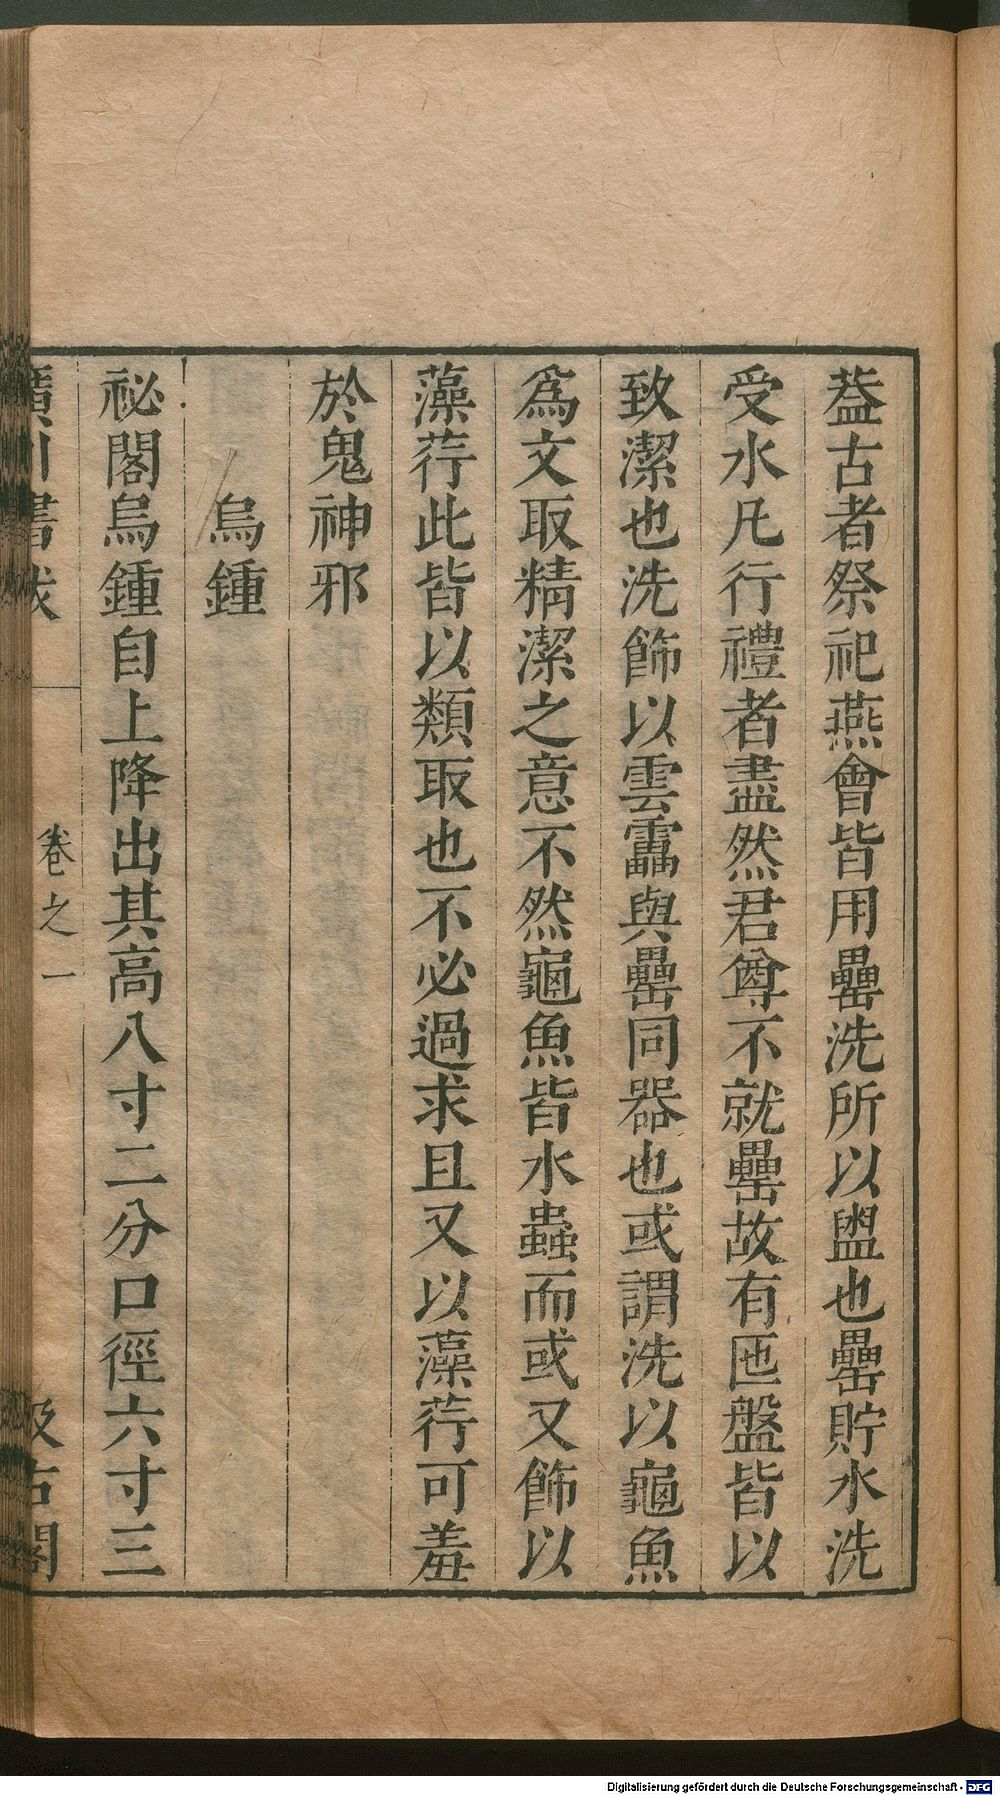 葢古者祭祀燕會皆用罍洗所以盥也罍貯水洗
受水凡行禮者盡然君尊不就罍故有匜盤皆以
致潔也洗飾以雲靁與罍同器也或謂洗以龜魚
爲文取精潔之意不然龜魚皆水蟲而或又飾以
藻荇此皆以類取也不必過求且又以藻荇可羞
於鬼神邪
烏鍾
祕閣烏鍾自上降出其高八寸二分口徑六寸三
廣川書跋 卷之一 汲古閣
Digitalisierung gefördert durch die Deutsche Forschungsgemeinschaft - DFG